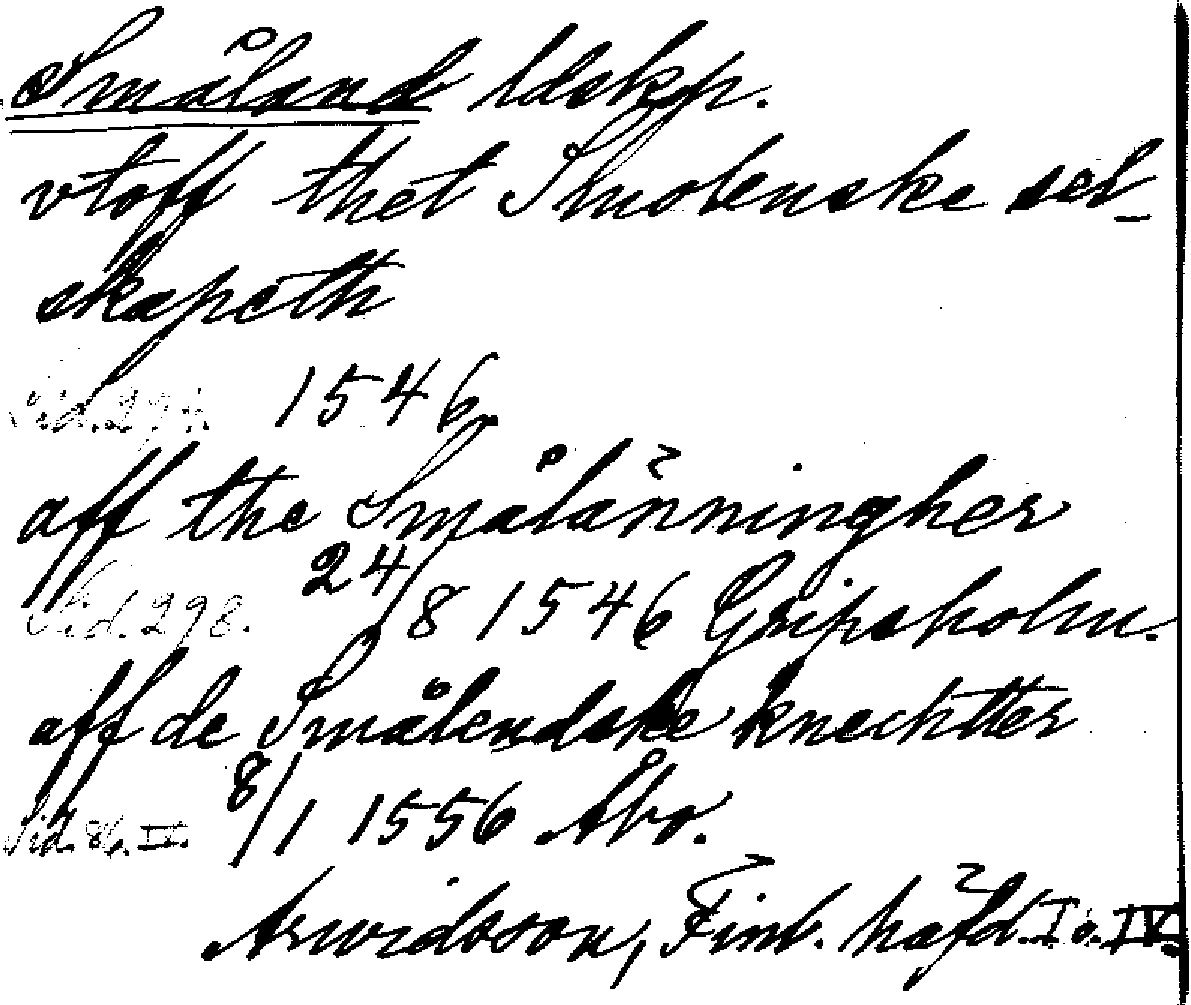 Småland ldskp.
vtoff thet Smolenske sel-
skapeth
Sid. 274. 1546.
aff the Smålänningher
Sid. 298. 24/8 1546 Gripsholm.
aff de Smålendske knechtter
Sid. 86. IV. 8/1 1556 Åbo.
Arwidsson, Finl. häfd. I o. IV.